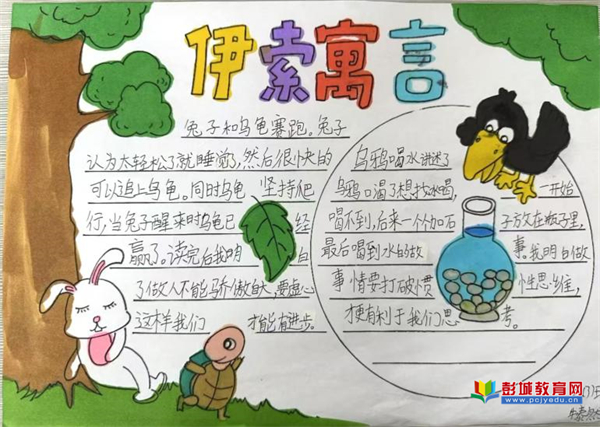 伊索寓言
兔子和乌龟赛跑。兔子
认为太轻松了就睡觉了,然后很快的
可以追上乌龟。同时乌龟、坚持爬
行,当兔子醒来时乌龟已 经
赢了。读完后我明 白
了做人不能骄傲自大,要虚心
这样我们 才能有进步。
乌鸦喝水讲述了
乌鸦口渴了想找水喝, 一开始
喝不到,后来一个个加石 子放在瓶子里,
最后喝到水的故 事。我明白做
事情要打破惯 性思维,
才更有利于我们思 考。
彭城教育网
www.pcjyedu.cn